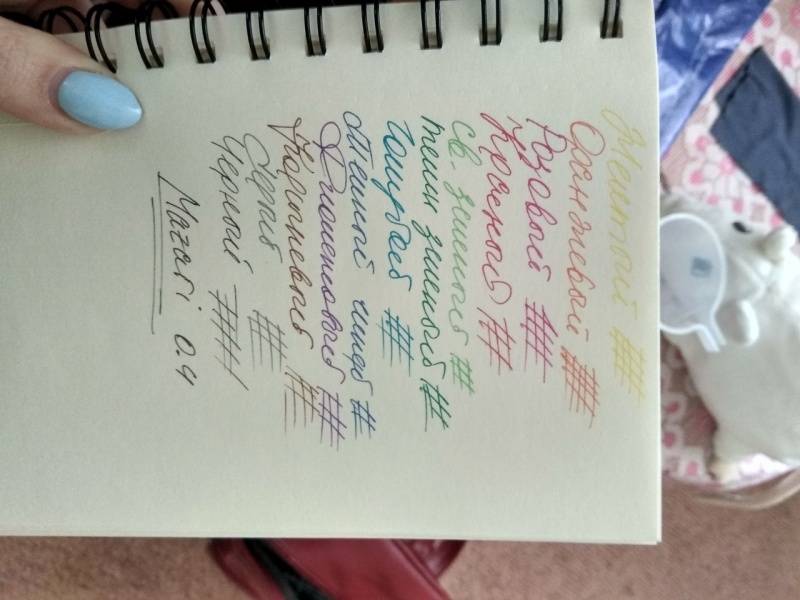 Желтый #
Оранжевый #
Розовый #
Красный #
Св. зеленый #
темн зеленый #
Голубой #
Темный синий #
Фиолетовый #
Коричневый #
Серый #
Черный #
Mazari 0.4